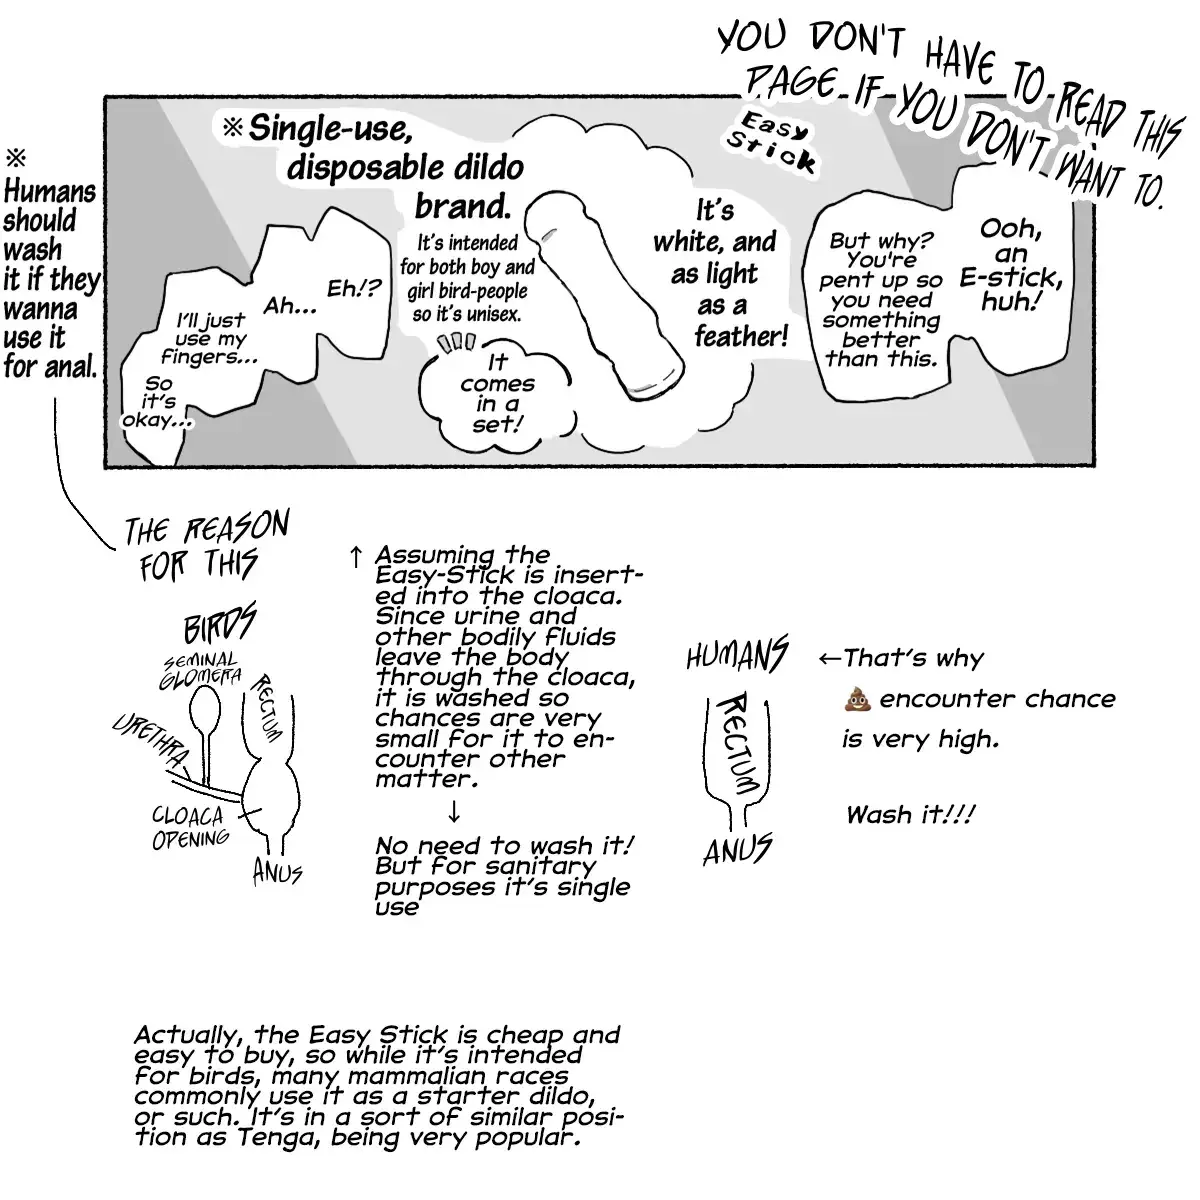 YOU DON'T HAVE TO READ THIS
PAGE IF YOU DON'T WANT TO.
Easy
Stick
Ooh,
an
E-stick,
huh!
But why?
You're
pent up so
you need
something
better
than this.
※Single-use,
disposable dildo
brand.
It's intended
for both boy and
girl bird-people
so it's unisex.
It's
white, and
as light
as a
feather!
It
comes
in a
set!
Eh!?
Ah...
I'll just
use my
fingers...
So
it's
okay...
※
Humans
should
wash
it if they
wanna
use it
for anal.
THE REASON
FOR THIS
BIRDS
SEMINAL
GLOMERA
RECTUM
URETHRA
CLOACA
OPENING
ANUS
↑ Assuming the
Easy-Stick is insert-
ed into the cloaca.
Since urine and
other bodily fluids
leave the body
through the cloaca,
it is washed so
chances are very
small for it to en-
counter other
matter.
↓
No need to wash it!
But for sanitary
purposes it's single
use
HUMANS
RECTUM
ANUS
←That's why
💩 encounter chance
is very high.
Wash it!!!
Actually, the Easy Stick is cheap and
easy to buy, so while it's intended
for birds, many mammalian races
commonly use it as a starter dildo,
or such. It's in a sort of similar posi-
tion as Tenga, being very popular.